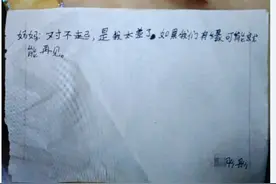 妈妈 对不起，是我太差了。如果我们有缘可能就
能再见。